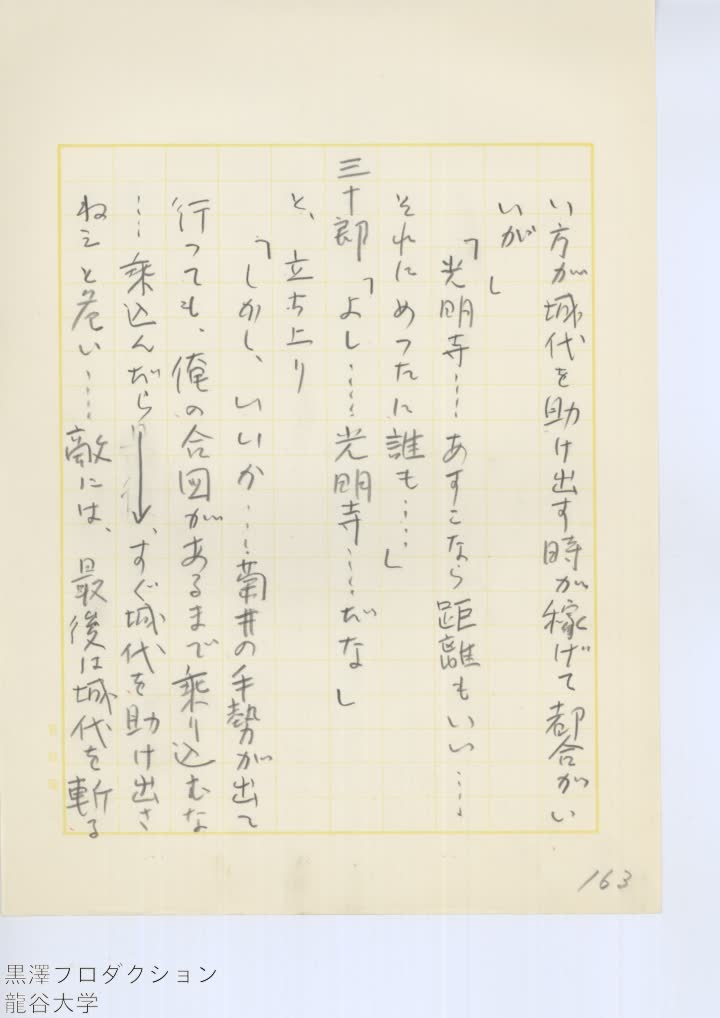 い方が城代を助け出す時が稼げて都合がい
いが」
「光明寺……あすこなら距離もいい……
それにめつたに誰も……」
三十郎「よし……光明寺……だな」
と、立ち上り
「しかし、いいか……菊井の手勢が出て
行つても、俊の合図があるまで乗り込むな
……乗込んだら、すぐ城代を助け出さ
ねえと危い……敵には、最後は城代を斬る
163
黒澤プロダクション
龍谷大学